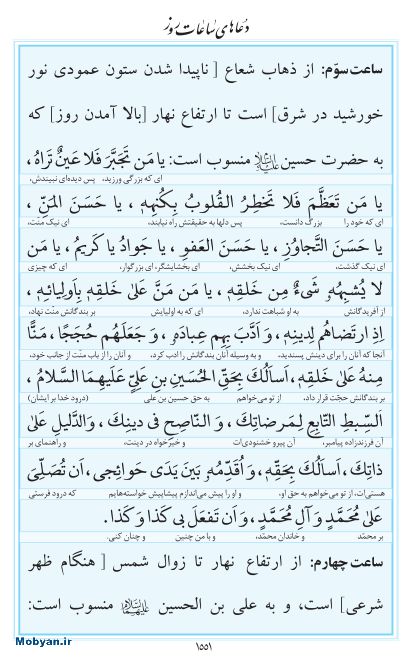 دعاهای ساعات روز
ساعت سوّم: از ذهاب شعاع [ ناپیدا شدن ستون عمودی نور
خورشید در شرق] است تا ارتفاع نهار [بالا آمدن روز] که
به حضرت حسین علیه‌السلام منسوب است: یا مَن تَجَبَّرَ فَلا عَینٌ تَراهُ ،
ای که بزرگی ورزید، پس دیده‌ای نبیندش،
یا مَن تَعَظَّمَ فَلا تَخطِرُ القُلوبُ بِکُنهِهِ ، یا حَسَنَ المَنِّ ،
ای که خود را بزرگ دانست، پس دلها به حقیقتش راه نیابند، ای نیک منّت،
یا حَسَنَ التَّجاوُزِ ، یا حَسَنَ العَفوِ ، یا جَوادُ یا کَریمُ ، یا مَن
ای نیک گذشت، ای نیک بخشش، ای بخشایشگر، ای بزرگوار، ای که چیزی
لا یُشبِهُهُ شَیءٌ مِن خَلقِهِ ، یا مَن مَنَّ عَلیٰ خَلقِهِ بِاَولِیائِهِ ،
از آفریدگانش به او شباهت ندارد، ای که به اولیایش بر بندگانش منّت نهاد،
اِذِ ارتَضاهُم لِدینِهِ ، وَ اَدَّبَ بِهِم عِبادَهُ ، وَ جَعَلَهُم حُجَجًا ، مَنًّا
آنجا که آنان را برای دینش پسندید، و به وسیله آنان بندگانش را ادب کرد، و آنان را از باب منّت از جانب خود،
مِنهُ عَلیٰ خَلقِهِ ، اَساَلُکَ بِحَقِّ الحُسَینِ بنِ عَلِیٍّ عَلَیهِمَا السَّلامُ ،
بر بندگانش حجّت قرار داد، از تو می‌خواهم به حق حسین بن علی (درود خدا بر ایشان)
اَلسِّبطِ التّابِعِ لِمَرضاتِکَ ، وَ النّاصِحِ فی دینِکَ ، وَالدَّلیلِ عَلیٰ
آن فرزندزاده پیامبر، آن پیرو خشنودی‌ات و خیرخواه در دینت، و راهنمای بر
ذاتِکَ ، اَساَلُکَ بِحَقِّهِ ، وَ اُقَدِّمُهُ بَینَ یَدَی حَوائِجی ، اَن تُصَلِّیَ
هستی‌ات، از تو می‌خواهم به حق او، و او را پیش می‌اندازم پیشاپیش خواسته‌هایم که درود فرستی
عَلیٰ مُحَمَّدٍ وَ آلِ مُحَمَّدٍ ، وَ اَن تَفعَلَ بی کَذا وَ کَذا.
بر محمّد و خاندان محمّد، و با من چنین و چنان کنی.
ساعت چهارم: از ارتفاع نهار تا زوال شمس [ هنگام ظهر
شرعی] است، و به علی بن الحسین علیهماالسلام منسوب است:
۱۵۵۱
Mobyan.ir